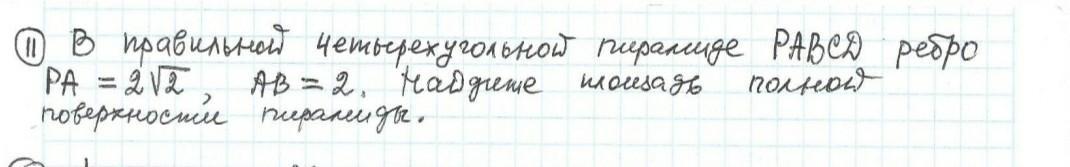 11 В правильной четырехугольной пирамиде PABCD ребро
PA = 2√2, AB = 2. Найдите площадь полной
поверхности пирамиды.